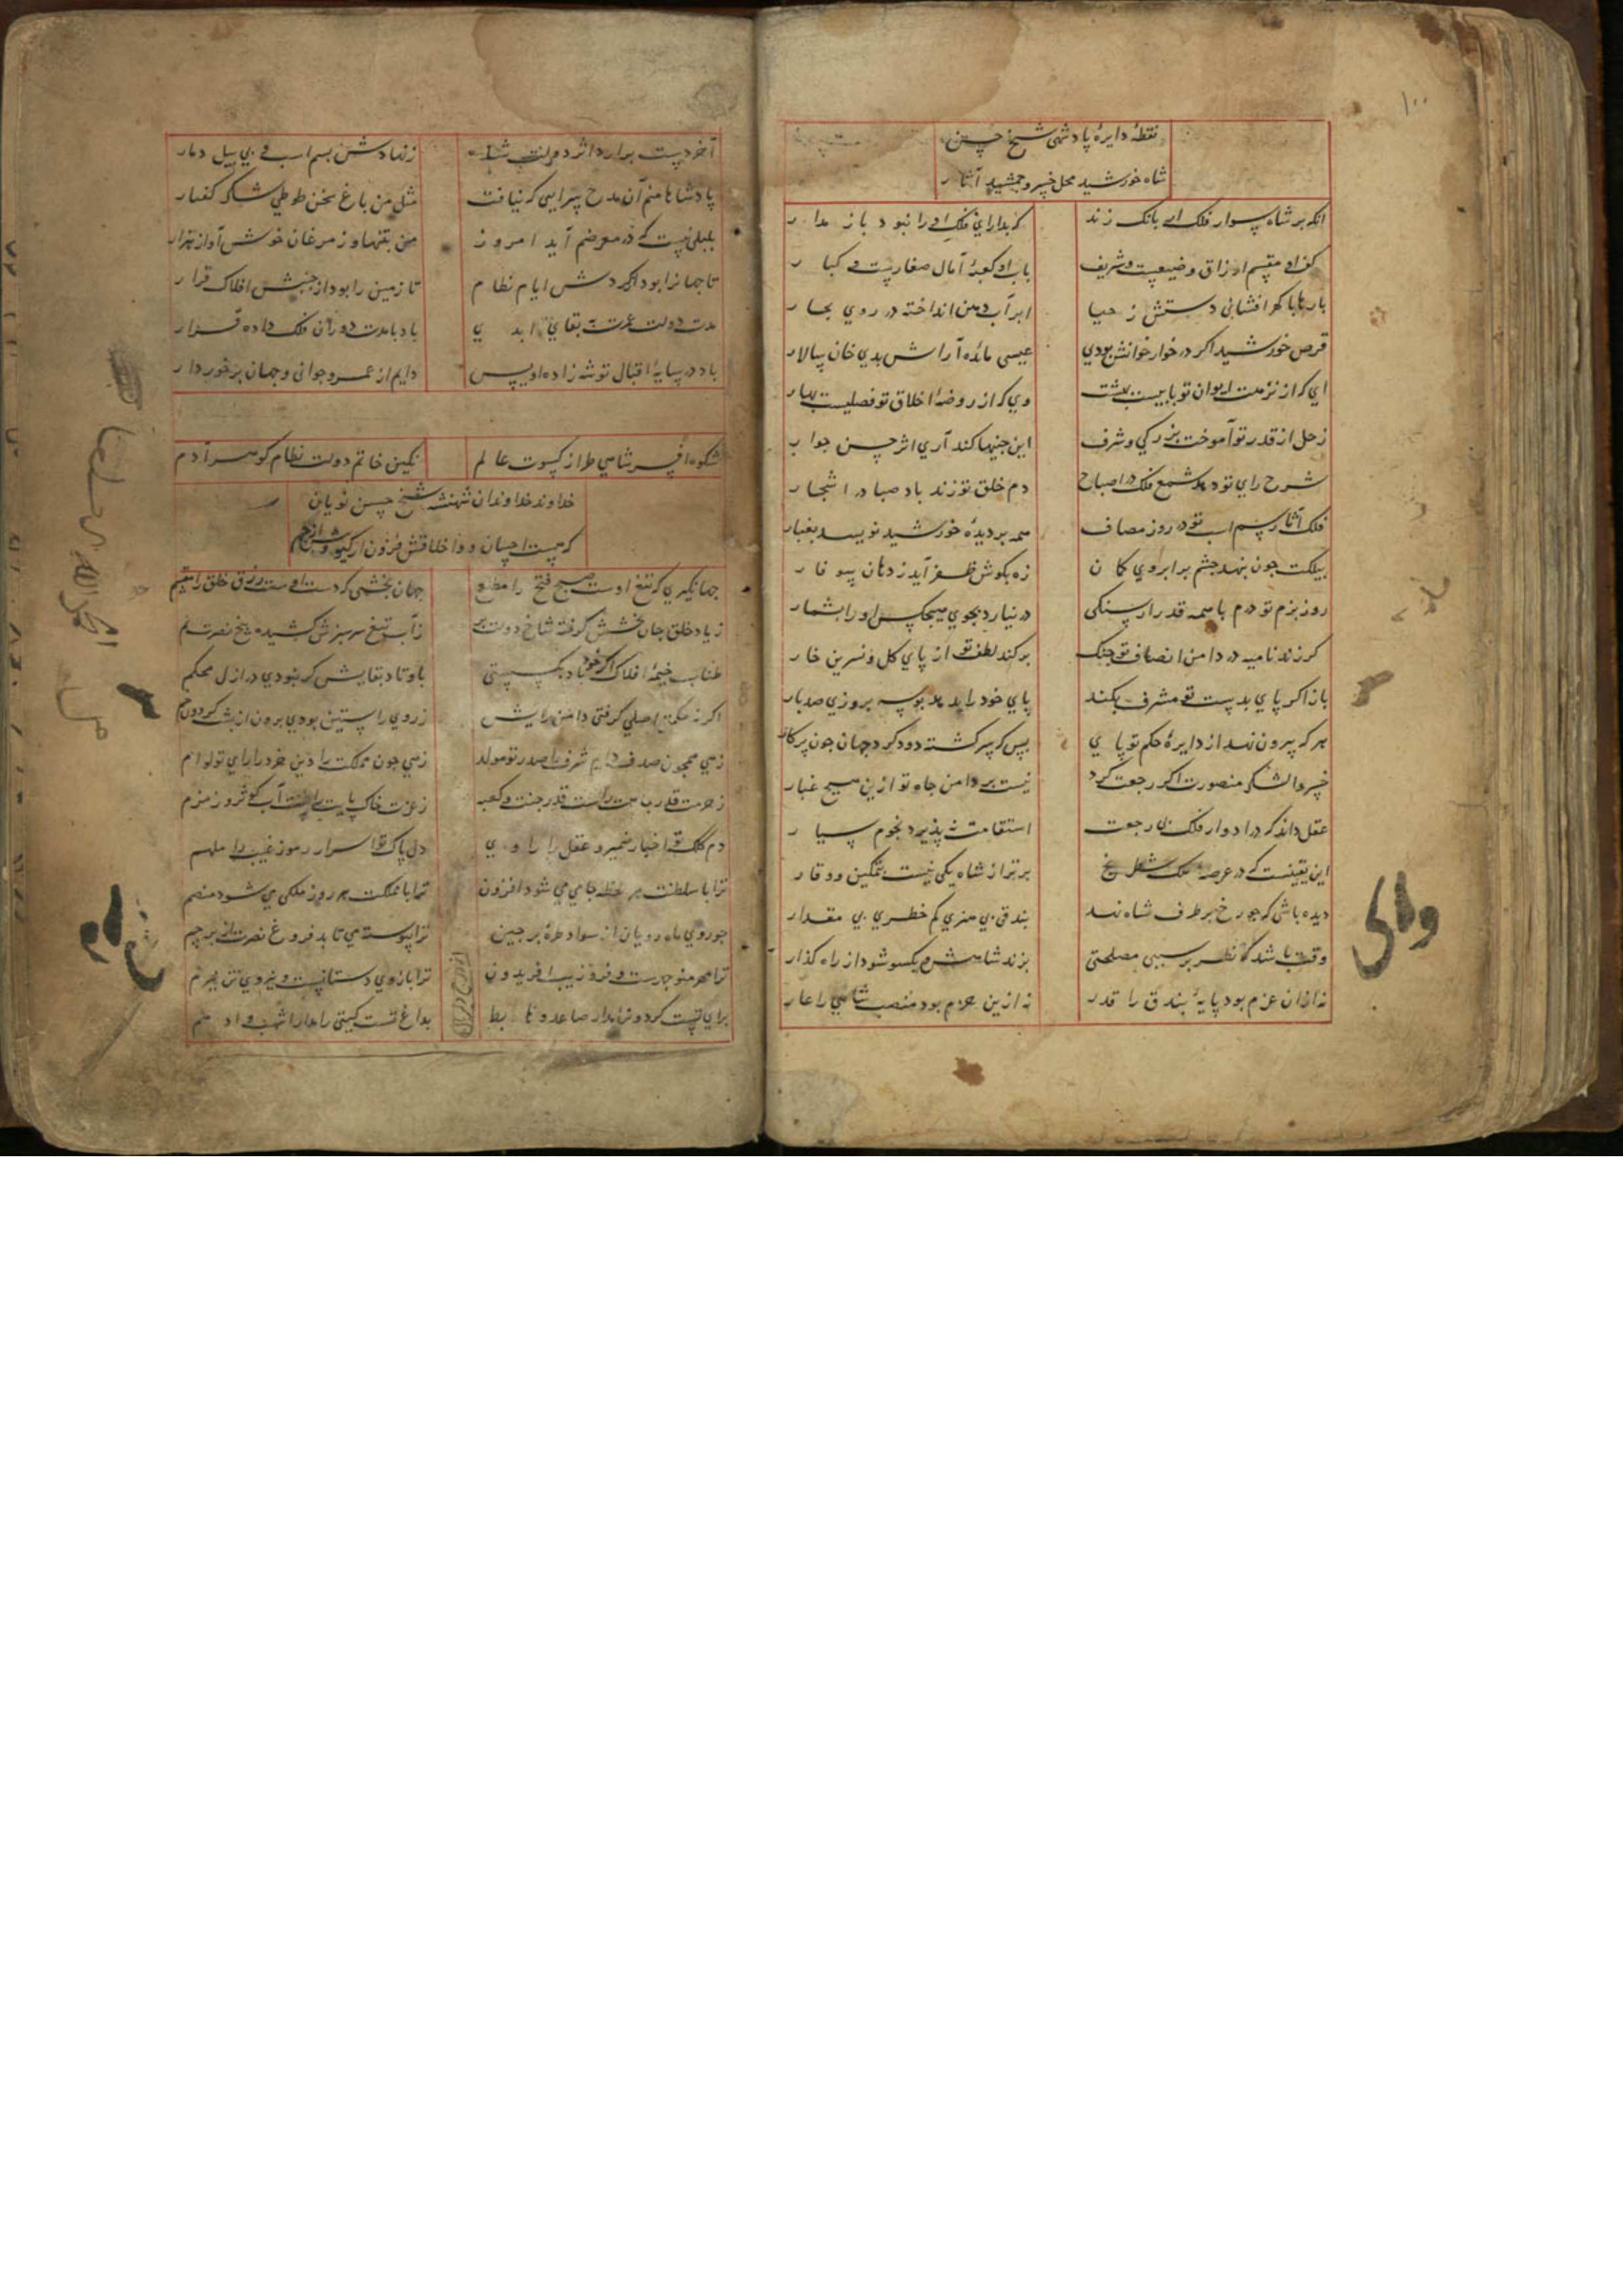 ۱۰۰
نقطهٔ دایرهٔ پادشهی شیخ حسن
شاه خورشید محل خسرو جمشید آثار
انکه بر شاه سوار فلک ار بانک زند که بدار ای فلک او را نبود باز مدار
کف او مقسم ارزاق وضیعست و شریف باب او کعبهٔ آمال صغارست و کبار
بارها با کهرافشانی دستش ز حیا ابر آب دهن انداخته در روی بحار
قرص خورشید اکر در خور خوانش بودی عیسی مائده آراش بدی خان سالار
ای که از نزهت ایوان تو بابیست بهشت وی که از روضهٔ اخلاق تو فصلیست بهار
زحل از قدر تو آموخت بزرکی و شرف این جنینها کند آری اثر حسن جوار
شرح رای تو دهد شمع فلک در اصباح دم خلق تو زند باد صبا در اشجار
فلک آثار سم اسب تو در روز مصاف همه بر دیدهٔ خورشید نویسد بغبار
بیلکت جون بنهد جشم بر ابروی کمان زه بکوش ظفر آید ز دهان سوفار
روز بزم تو درم با همه قدر ار سنکی در نیارد بجوی هیجکس او را بشمار
کر زند نامیه در دامن انصاف تو جنک برکند لطف تو از پای کل و نسرین خار
باز اکر پای بدست تو مشرف بکند پای خود را بدهد بوسه بروزی صد بار
هر که بیرون نهد از دایرهٔ حکم تو پای بس که سر کشته دود کرد جهان جون پرکار
خسروا لشکر منصورت اکر رجعت کرد نیست بر دامن جاه تو ازین هیج غبار
عقل داند که در ادوار فلک بی رجعت استقامت نپذیرد نجوم سیار
این یقینست که در عرصه ملک شطرنج برتر از شاه یکی نیست بتمکین و وقار
دیده باشی که جو رخ بر طرف شاه نهد بندقی بی هنری کم خطری بی مقدار
وقت باشد که نظر بر سبب مصلحتی بزند شاهش و یکسو شود از راه کذار
نه از ان عزم بود پایهٔ بندق را قدر نه ازین حزم بود منصب شاهی را عار
والی
آخر دست برارد اثر دولت شاه ز نهادش بسم اسب و پی پیل دمار
پادشاها منم آن مدح سرایی که نیافت مثل من باغ سخن طوطی شکر کفتار
بلبلی نیست که در معرضم آید امروز من بتنها و ز مرغان خوش آواز هزار
تا جهانرا بود از کردش ایام نظام تا زمین را بود از جنبش افلاک قرار
مدت دولت عمرت بقای ابدی باد با مدت دوران فلک داده قرار
باد در سایهٔ اقبال تو شه زاده اویس دایم از عمر و جوانی و جهان برخوردار
شکوه افسر شاهی طراز کسوت عالم نکین خاتم دولت نظام کوهر آدم
خداوند خداوندان شهنشه شیخ حسن نویان
که هست احسان و اخلاقش فزون از کیف و از کم
جهانکیری که تیغ اوست صبح فتح را مطلع جهان بخشی که دست اوست رزق خلق را مقسم
ز یاد خلق جان بخشش کرفته شاخ دولت بر ز آب تیغ سرسبزش کشیده بیخ نصرت نم
طناب خیمهٔ افلاک اکر خود باد بکسستی باوتاد بقایش کر نبودی در ازل محکم
اکر نه صبح اصلی کرفتی دامن رایش ز روی راستین بودی برون از بشت کردون خم
زهی همچون صدف دایم شرف را صدر تو مولد زهی جون مملکت را دین خرد را رای تو توام
ز حرمت قدر بابت راست قدر جنت و کعبه ز عزت خاک پایت راست آب کوثر و زمزم
دم کلک تو اخبار ضمیر و عقل را راوی دل پاک تو اسرار رموز غیب را ملهم
ترا با سلطنت هر لحظه جاهی می شود افزون ترا با مملکت هر روز ملکی می شود منضم
جو روی ماه رویان از سواد طرهٔ برجین ترا پیوسته می تابد فروغ نصرت از پرچم
ترا مهر منوجهرست و فر و زیب افریدون ترا بازوی دستانست و نیروی تن نیرم
برای تست کردون را مدار صاعد و هابط بداغ تست کیتی را مدار اشهب و ادهم